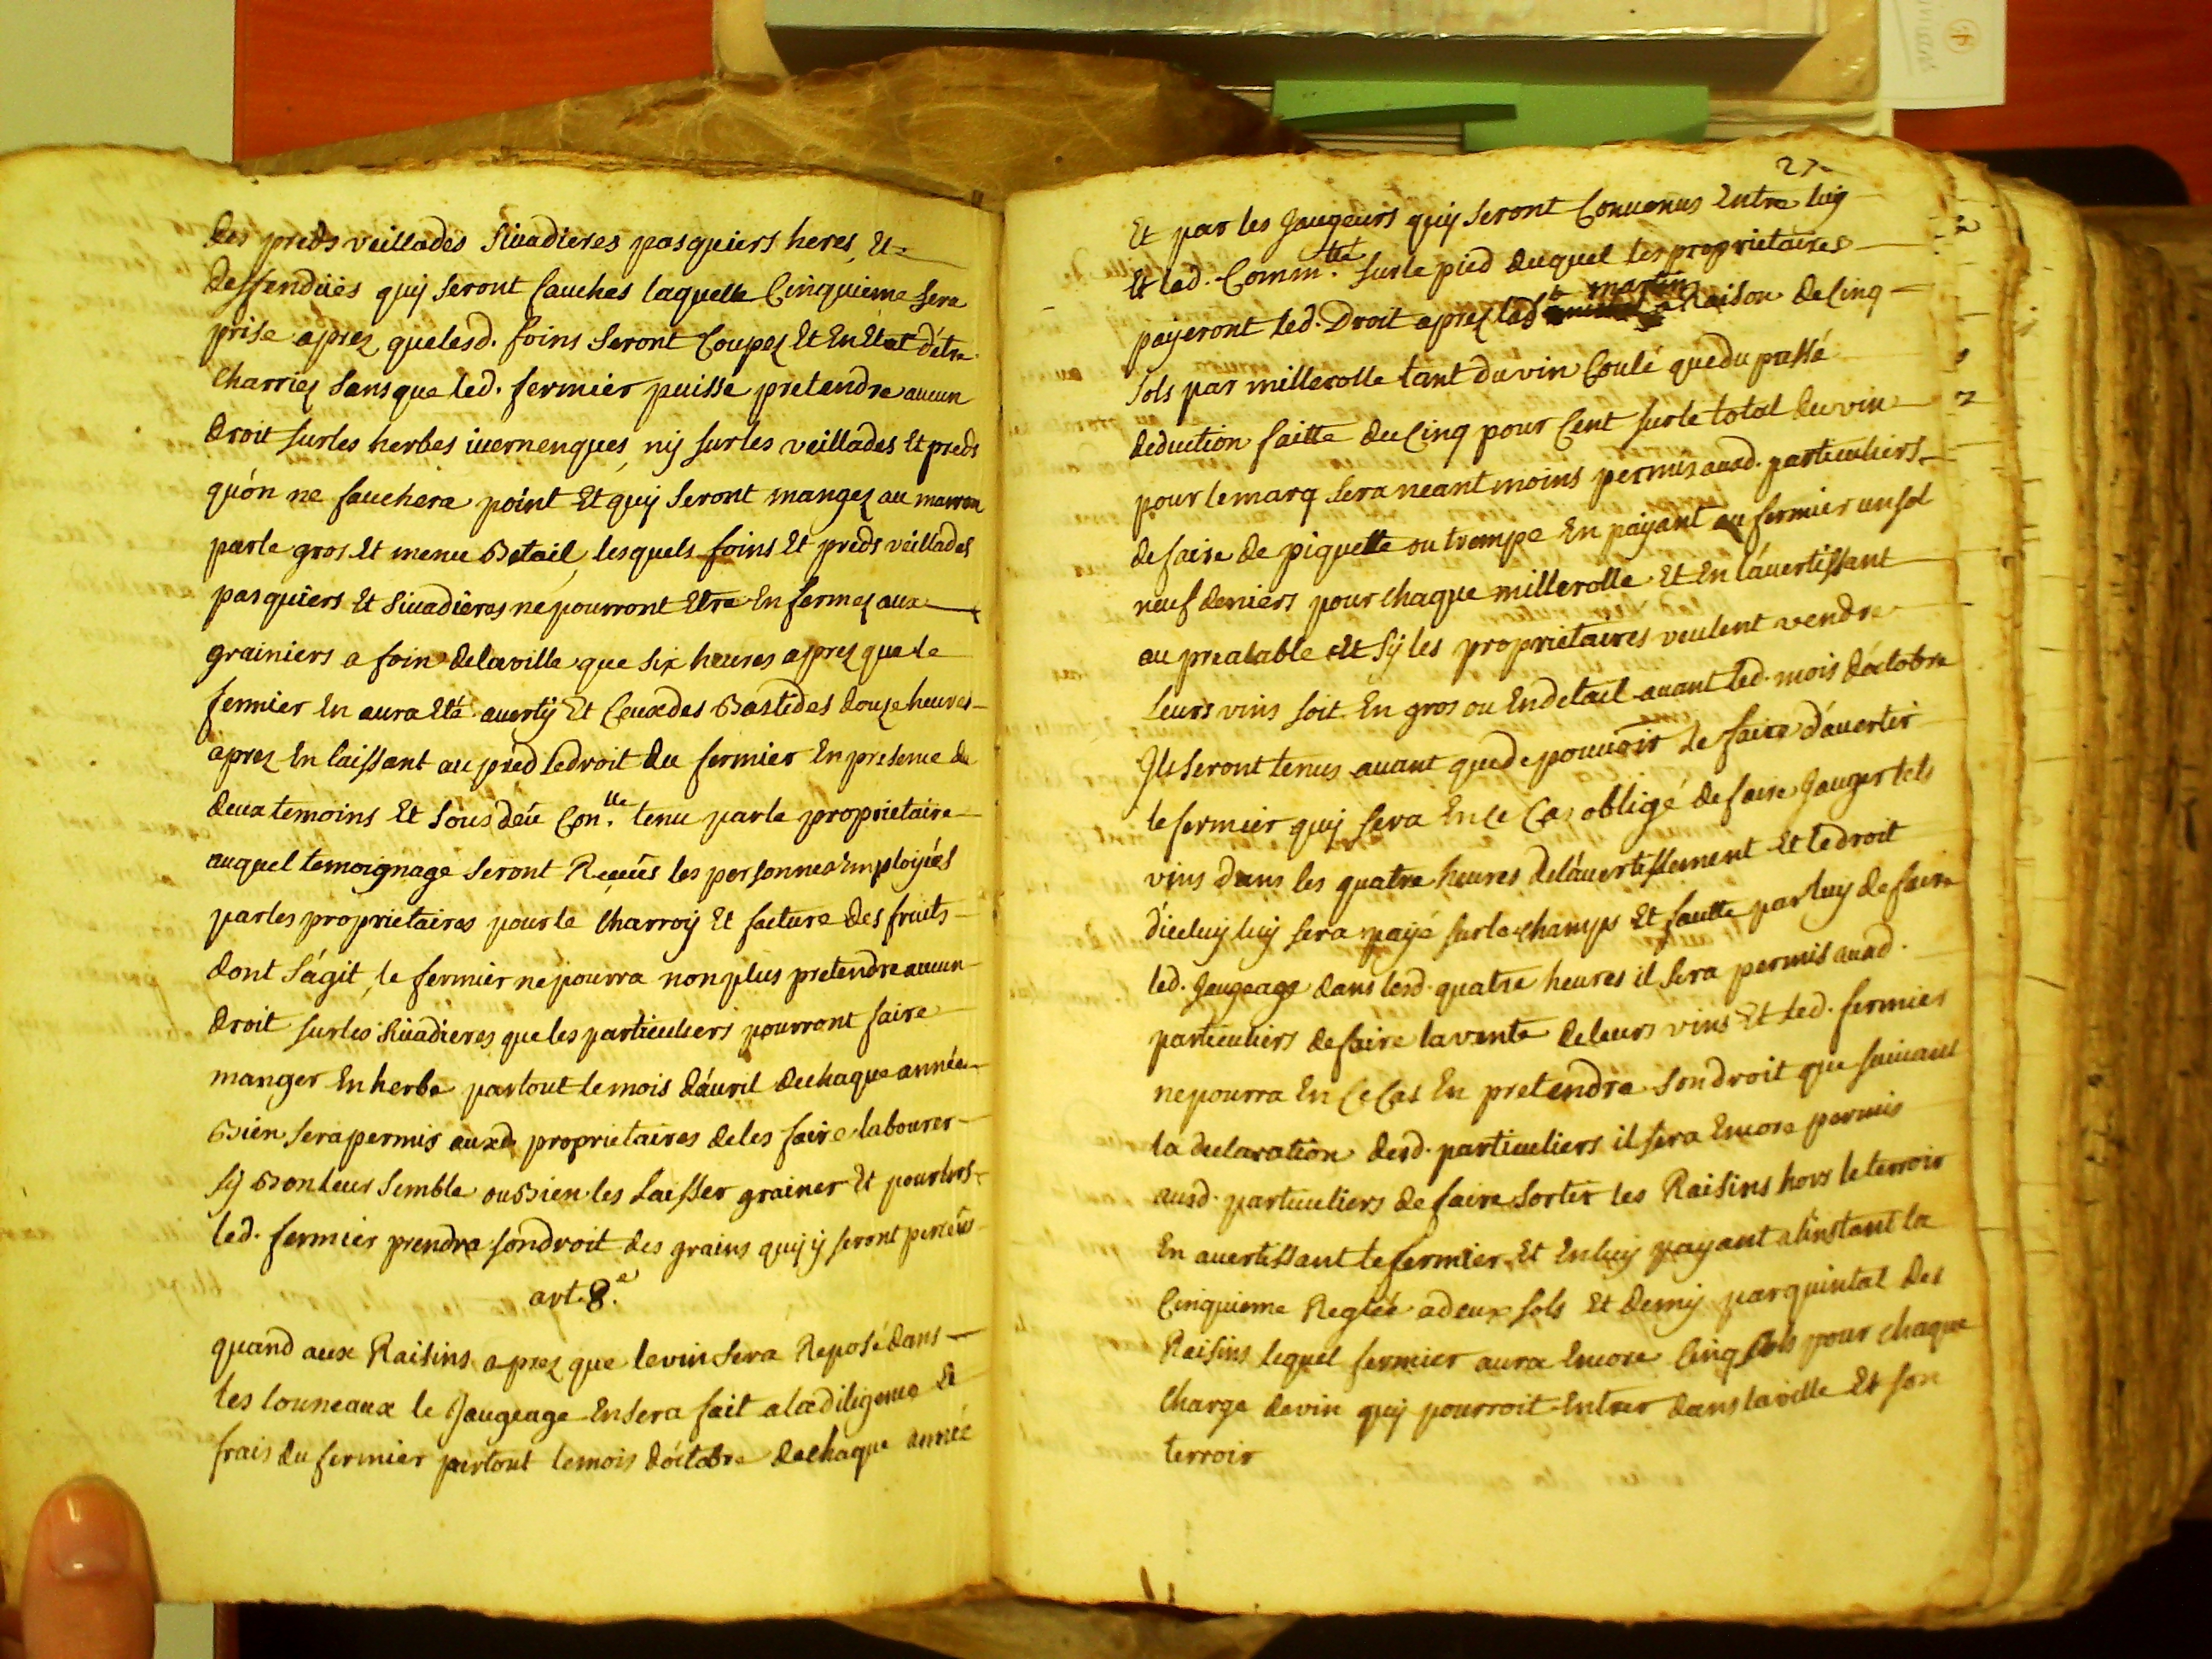 des preds veillades Sivadieres pasquiers heres, Et
deffendües quy seront fauches laquelle Cinquieme sera
prise aprez, quelesd. foins Seront Coupez Et En Etat d'être
Charriez Sansque led. fermier puisse pretendre aucun
droit surles herbes ivernenques, ny surles veillades Et preds
qu'on ne fauchera point Et quy Seront mangez au
parle gros Et menu Betail, lesquels foins Et preds veillades
pasquiers Et Sivadieres nepourront Etre Enfermez aux
grainiers a foin delaville que six heures aprez quele
fermier En aura Eté averty Et Ceux des Bastides douze heures
aprez En laissant au pied ledroit du fermier En presence de
deux temoins Et Sous deüe Con.lle tenu parle proprietaire
auquel temoignage Seront Receüs les personnes Employées
parles proprietaires pourle Charroy Et facture des fruits
dont S'agit, le fermier nepourra nonplus pretendre aucun
droit surles Sivadieres queles particuliers pourront faire
manger En herbe partout lemois d'avril dechaque année
Bien Serapermis auxd. proprietaires deles faire labourer
sy Bonleur Semble ou Bien les Laisser grainer Et pourlors
led. fermier prendra Sondroit des grains quy y seront perceüs
art. 8.e
quand aux Raisins aprez que levin Sera Reposé dans
les touneaux le Jaugeage Ensera fait aladiligence Et
frais du fermier partout lemois d'octobre dechaque année
27
Et par les Jaugeurs quy Seront Convenus Entre luy
Et lad. Comm.té surle pied duquel les proprietaires
payeront led. Droit aprez lad. St martin a Raison decinq
Sols par millerolle tant duvin Coulé quedu passé
deduction faitte du Cinq pour Cent surle total duvin
pour lemarq Sera neantmoins permis ausd. particuliers
defaire de piquette ou trempe En payant au fermier unsol
neuf deniers pour chaque millerolle Et En l'avertissant
au prealable Et Sy les proprietaires veulent vendre
Leurs vins soit En gros ou Endetail avant led. mois d'octobre
Ils Seront tenus avant quede pouvoir le faire d'avertir
le fermier quy sera En ce Cas obligé defaire Jauger lets
vins dans les quatre heures del'avertissement Et ledroit
d'iceluy luy sera payé surle champs Et fautte parluy defaire
led. Jaugeage dans lesd. quatre heures il Sera permis ausd.
particuliers defaire lavente deleurs vins Et led. fermier
nepourra En Ce Cas En pretendre Sondroit que suivant
la declaration desd. particuliers il sera Encore permis
ausd. particuliers defaire Sortir les Raisins hors leterroir
En avertissant le fermier Et Enluy payant alinstant la
Cinquieme Reglée adeux sols Et demy parquintal des
Raisins lequel fermier aura Encore Cinq sols pour chaque
Charge devin quy pourroit Entrer dans laville Et son
terroir